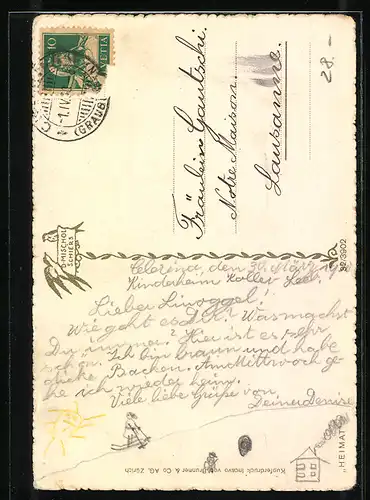 10
HELVETIA
1.IV.
(GRAUB.)
28.-
Fräulein Gautschi.
Notre Maison.
Lausanne.
D. MISCHOL
SCHIERS
32/3902
Celerina, den 30. März
Kinderheim
Lieber Linoggel!
Wie geht es Dir? Was machst
Du immer? Hier ist es sehr
schön. Ich bin braun und habe
dicke Backen. Am Mittwoch ge-
he ich wieder heim.
Viele liebe Grüße von
Deiner Denise
Kupferdruck Incavo von Brunner & Co AG. Zürich
"HEIMAT"